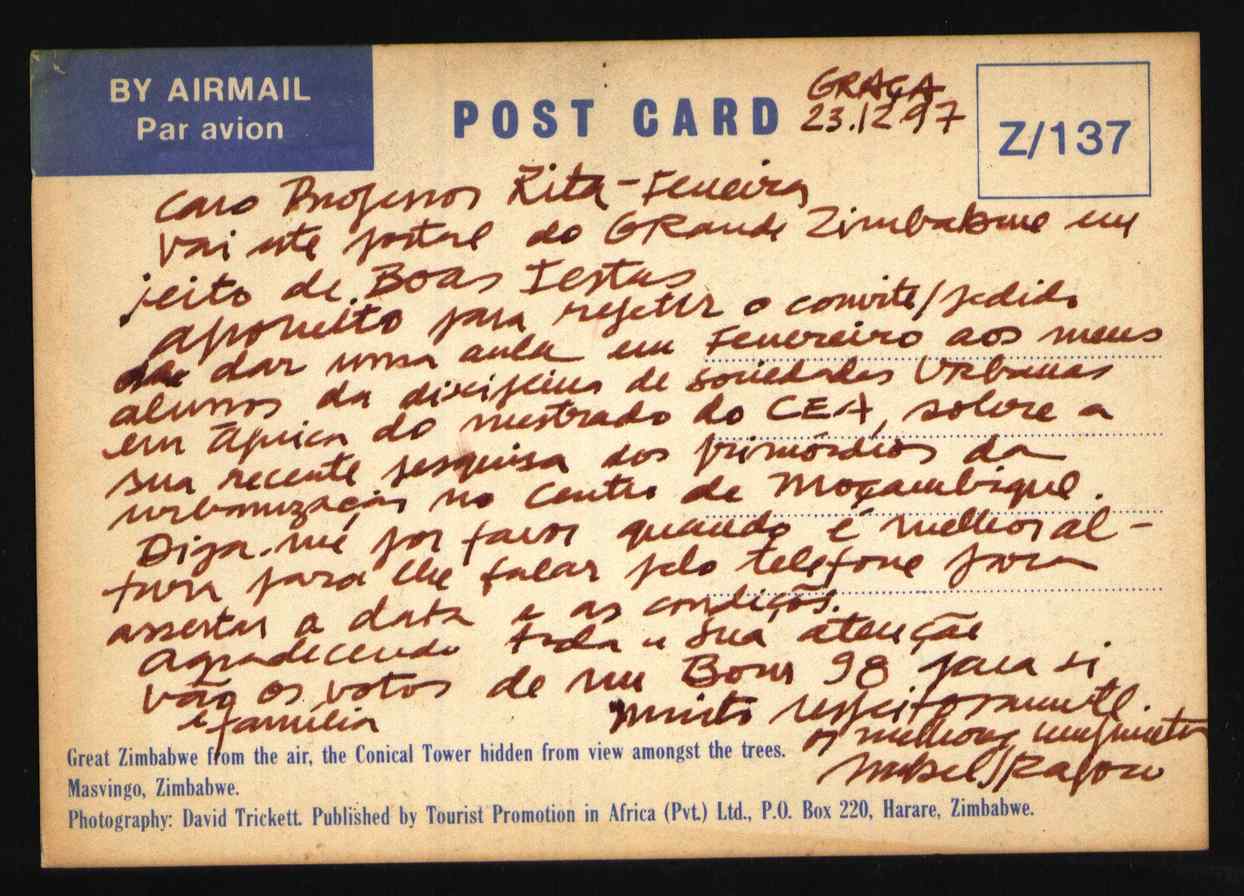 BY AIRMAIL
Par avion
POST CARD
GRAÇA
23.12.97
Z/137
Caro Professor Rita-Ferreira
Vai este postal do GRande Zimbabwe em
jeito de Boas Festas
Aproveito para repetir o convite/pedido
de dar uma aula em Fevereiro aos meus
alunos da disciplina de sociedades Urbanas
em África do mestrado do CEA, sobre a
sua recente pesquisa dos primórdios da
urbanização no Centro de Moçambique.
Diga-me por favor quando é melhor al-
tura para lhe falar pelo telefone para
assertar a data e as condições.
Agradecendo toda a sua atenção
vão os votos de um Bom 98 para si
e família
Muito respeitosamente.
os melhores cumprimentos
Great Zimbabwe from the air, the Conical Tower hidden from view amongst the trees.
Masvingo, Zimbabwe.
Photography: David Trickett. Published by Tourist Promotion in Africa (Pvt.) Ltd., P.O. Box 220, Harare, Zimbabwe.